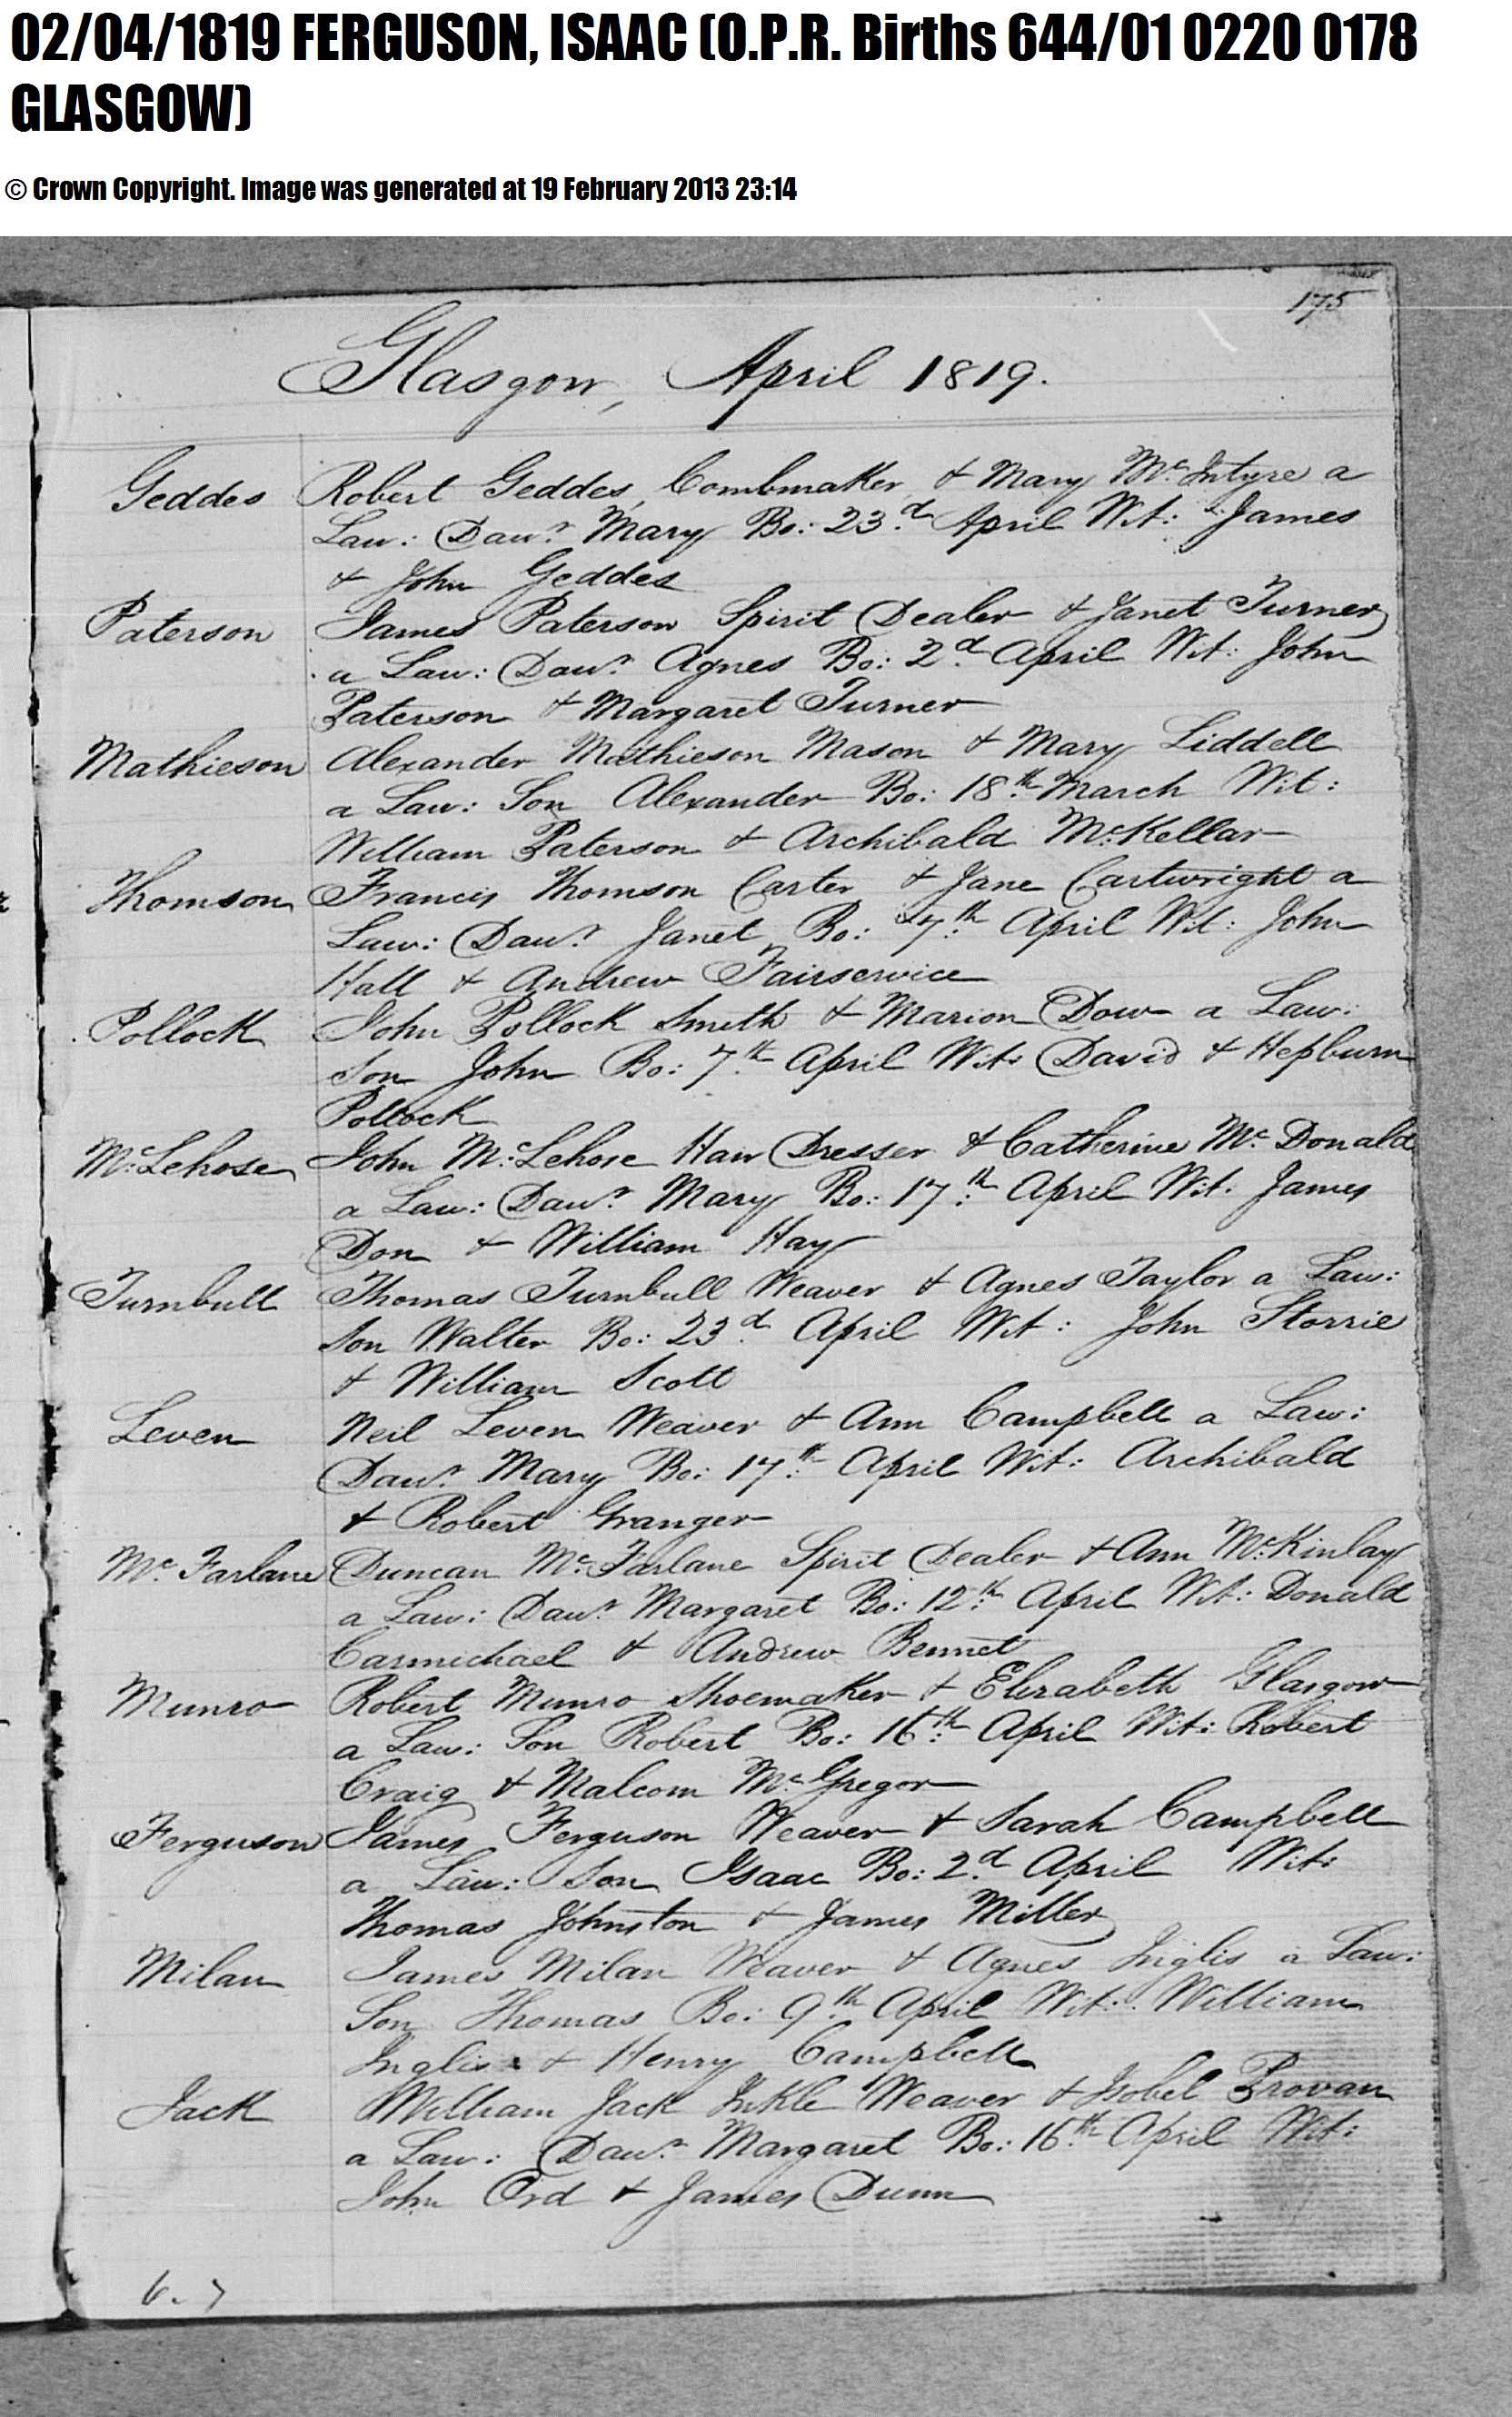 02/04/1819 FERGUSON, ISAAC (O.P.R. Births 644/01 0220 0178
GLASGOW)
© Crown Copyright. Image was generated at 19 February 2013 23:14
175
Glasgow, April 1819.
Geddes Robert Geddes, Combmaker, & Mary Mc Intyre a
Law: Dawr. Mary Bo: 23d. April Wit: James
& John Geddes
Paterson James Paterson Spirit Dealer & Janet Turner
a Law: Dawr. Agnes Bo: 2d. April Wit: John
Paterson & Margaret Turner
Mathieson Alexander Mathieson Mason & Mary Liddell
a Law: Son Alexander Bo: 18th. March Wit:
William Paterson & Archibald McKellar
Thomson Francis Thomson Carter & Jane Cartwright a
Law: Dawr. Janet Bo: 7th. April Wit: John
Hall & Andrew Fairservice
Pollock John Pollock Smith & Marion Dow a Law:
Son John Bo: 7th. April Wit: David & Hepburn
Pollock
Mc Lehose John Mc Lehose Hair Dresser & Catherine Mc Donald
a Law: Dawr. Mary Bo: 17th. April Wit: James
Don & William Hay
Turnbull Thomas Turnbull Weaver & Agnes Taylor a Law:
Son Walter Bo: 23d. April Wit: John Storrie
& William Scott
Leven Neil Leven Weaver & Ann Campbell a Law:
Dawr. Mary Bo: 17th. April Wit: Archibald
& Robert Granger
Mc Farlane Duncan Mc Farlane Spirit Dealer & Ann McKinlay
a Law: Dawr. Margaret Bo: 12th. April Wit: Donald
Carmichael & Andrew Bennet
Munro Robert Munro Shoemaker & Elizabeth Glasgow
a Law: Son Robert Bo: 16th. April Wit: Robert
Craig & Malcom Mc Gregor
Ferguson James Ferguson Weaver & Sarah Campbell
a Law: Son Isaac Bo: 2d. April Wit:
Thomas Johnston & James Miller
Milan James Milan Weaver & Agnes Inglis a Law:
Son Thomas Bo: 9th. April Wit: William
Inglis & Henry Campbell
Jack William Jack Inkle Weaver & Isobel Provan
a Law: Dawr. Margaret Bo: 16th. April Wit:
John Ord & James Dunn